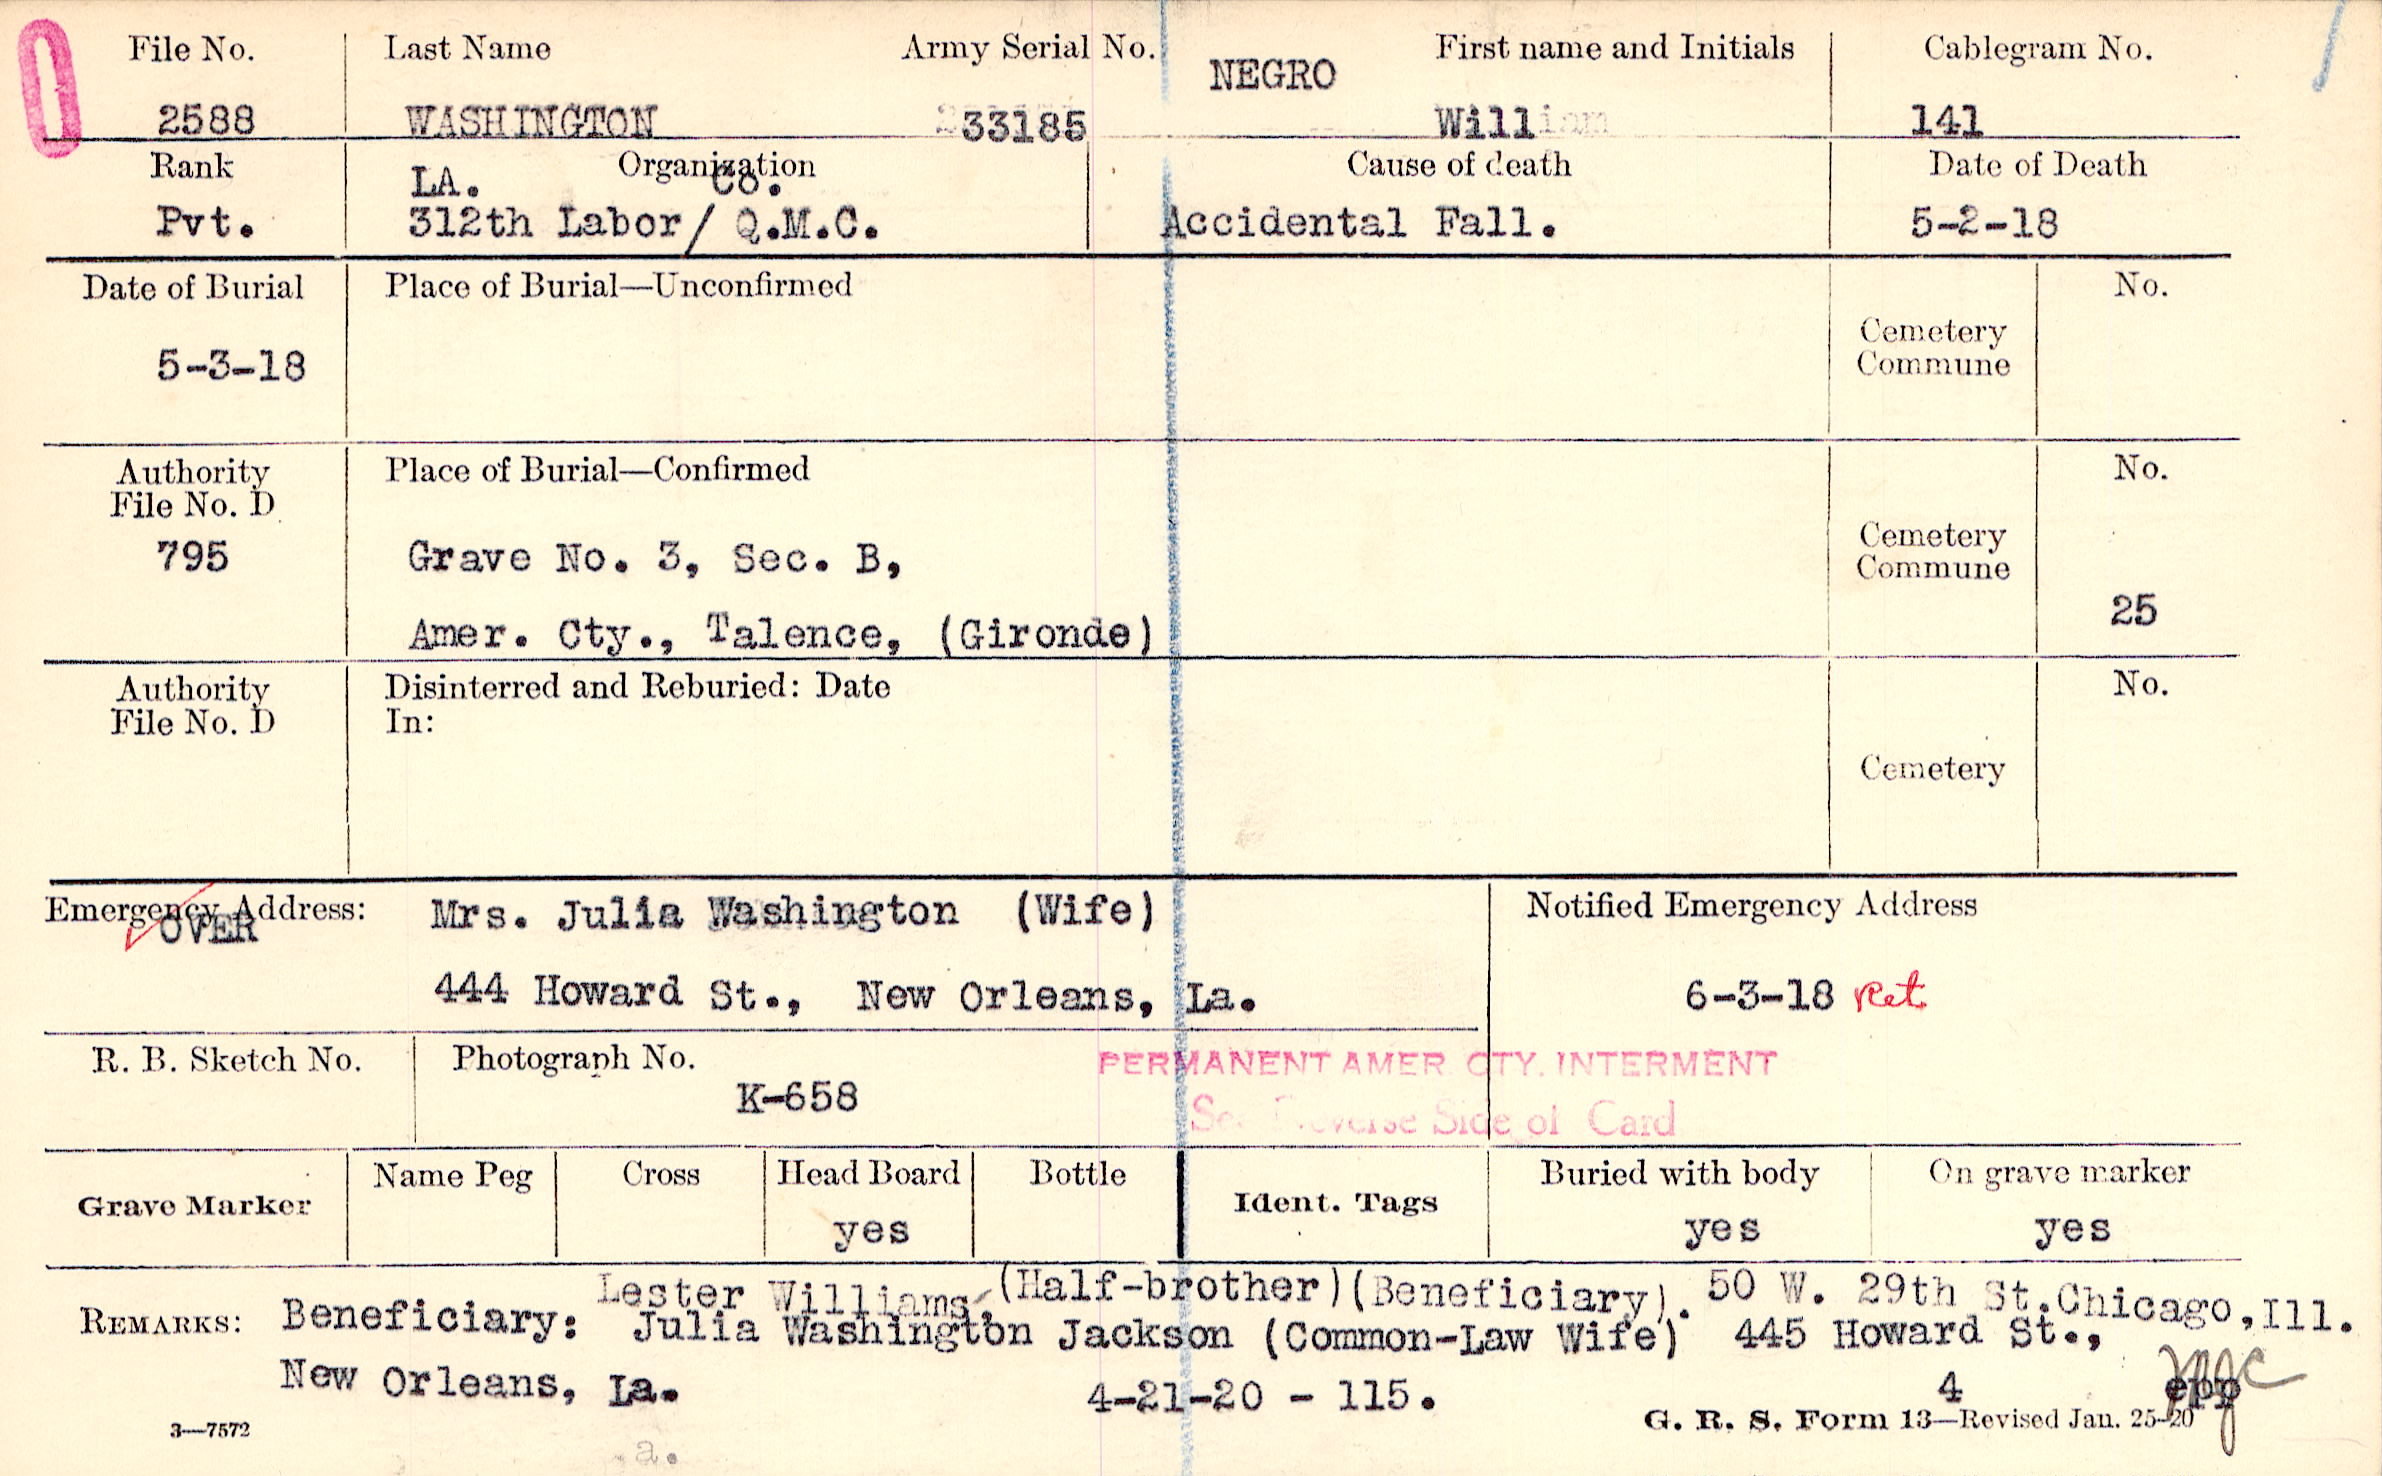 File No. Last Name Army Serial No. NEGRO First name and Initials Cablegram No.
2588 WASHINGTON 33185 William 141
Rank LA. Organization Co. Cause of death Date of Death
Pvt. 312th Labor/ Q.M.C. Accidental Fall. 5-2-18
Date of Burial Place of Burial—Unconfirmed No.
Cemetery
Commune
5-3-18
Authority Place of Burial—Confirmed No.
File No. D
795 Grave No. 3, Sec. B, Cemetery
Commune
25
Amer. Cty., Talence, (Gironde)
Authority Disinterred and Reburied: Date No.
File No. D In:
Cemetery
Emergency Address: Mrs. Julia Washington (Wife) Notified Emergency Address
OVER
444 Howard St., New Orleans, La. 6-3-18 Ret
R. B. Sketch No. Photograph No. PERMANENT AMER. CTY. INTERMENT
K-658
See Reverse Side of Card
Grave Marker Name Peg Cross Head Board Bottle Ident. Tags Buried with body On grave marker
yes yes yes
Lester Williams, (Half-brother)(Beneficiary). 50 W. 29th St. Chicago, Ill.
REMARKS: Beneficiary: Julia Washington Jackson (Common-Law Wife) 445 Howard St.,
New Orleans, La. 4-21-20 - 115. 4
3—7572 G. R. S. Form 13—Revised Jan. 25-20
a.